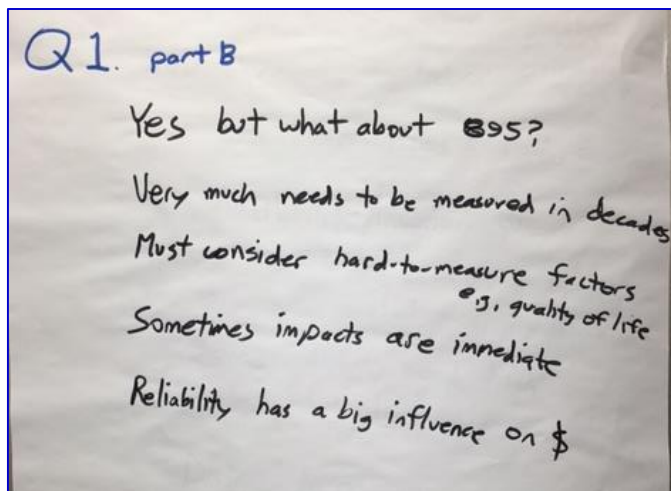 Q1. part B
Yes but what about 895?
Very much needs to be measured in decades
Must consider hard-to-measure factors
e.g. quality of life
Sometimes impacts are immediate
Reliability has a big influence on $